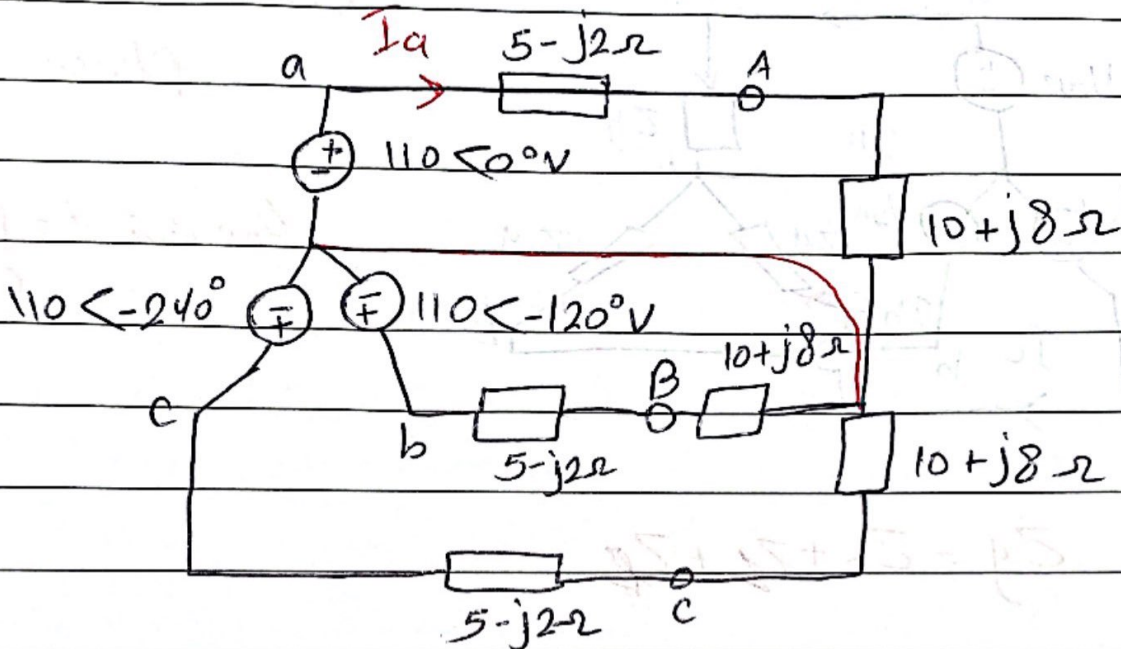 Ia
5-j2Ω
a
A
110<0°V
10+j8Ω
110<-240°
110<-120°V
10+j8Ω
B
c
b
5-j2Ω
10+j8Ω
5-j2Ω
C